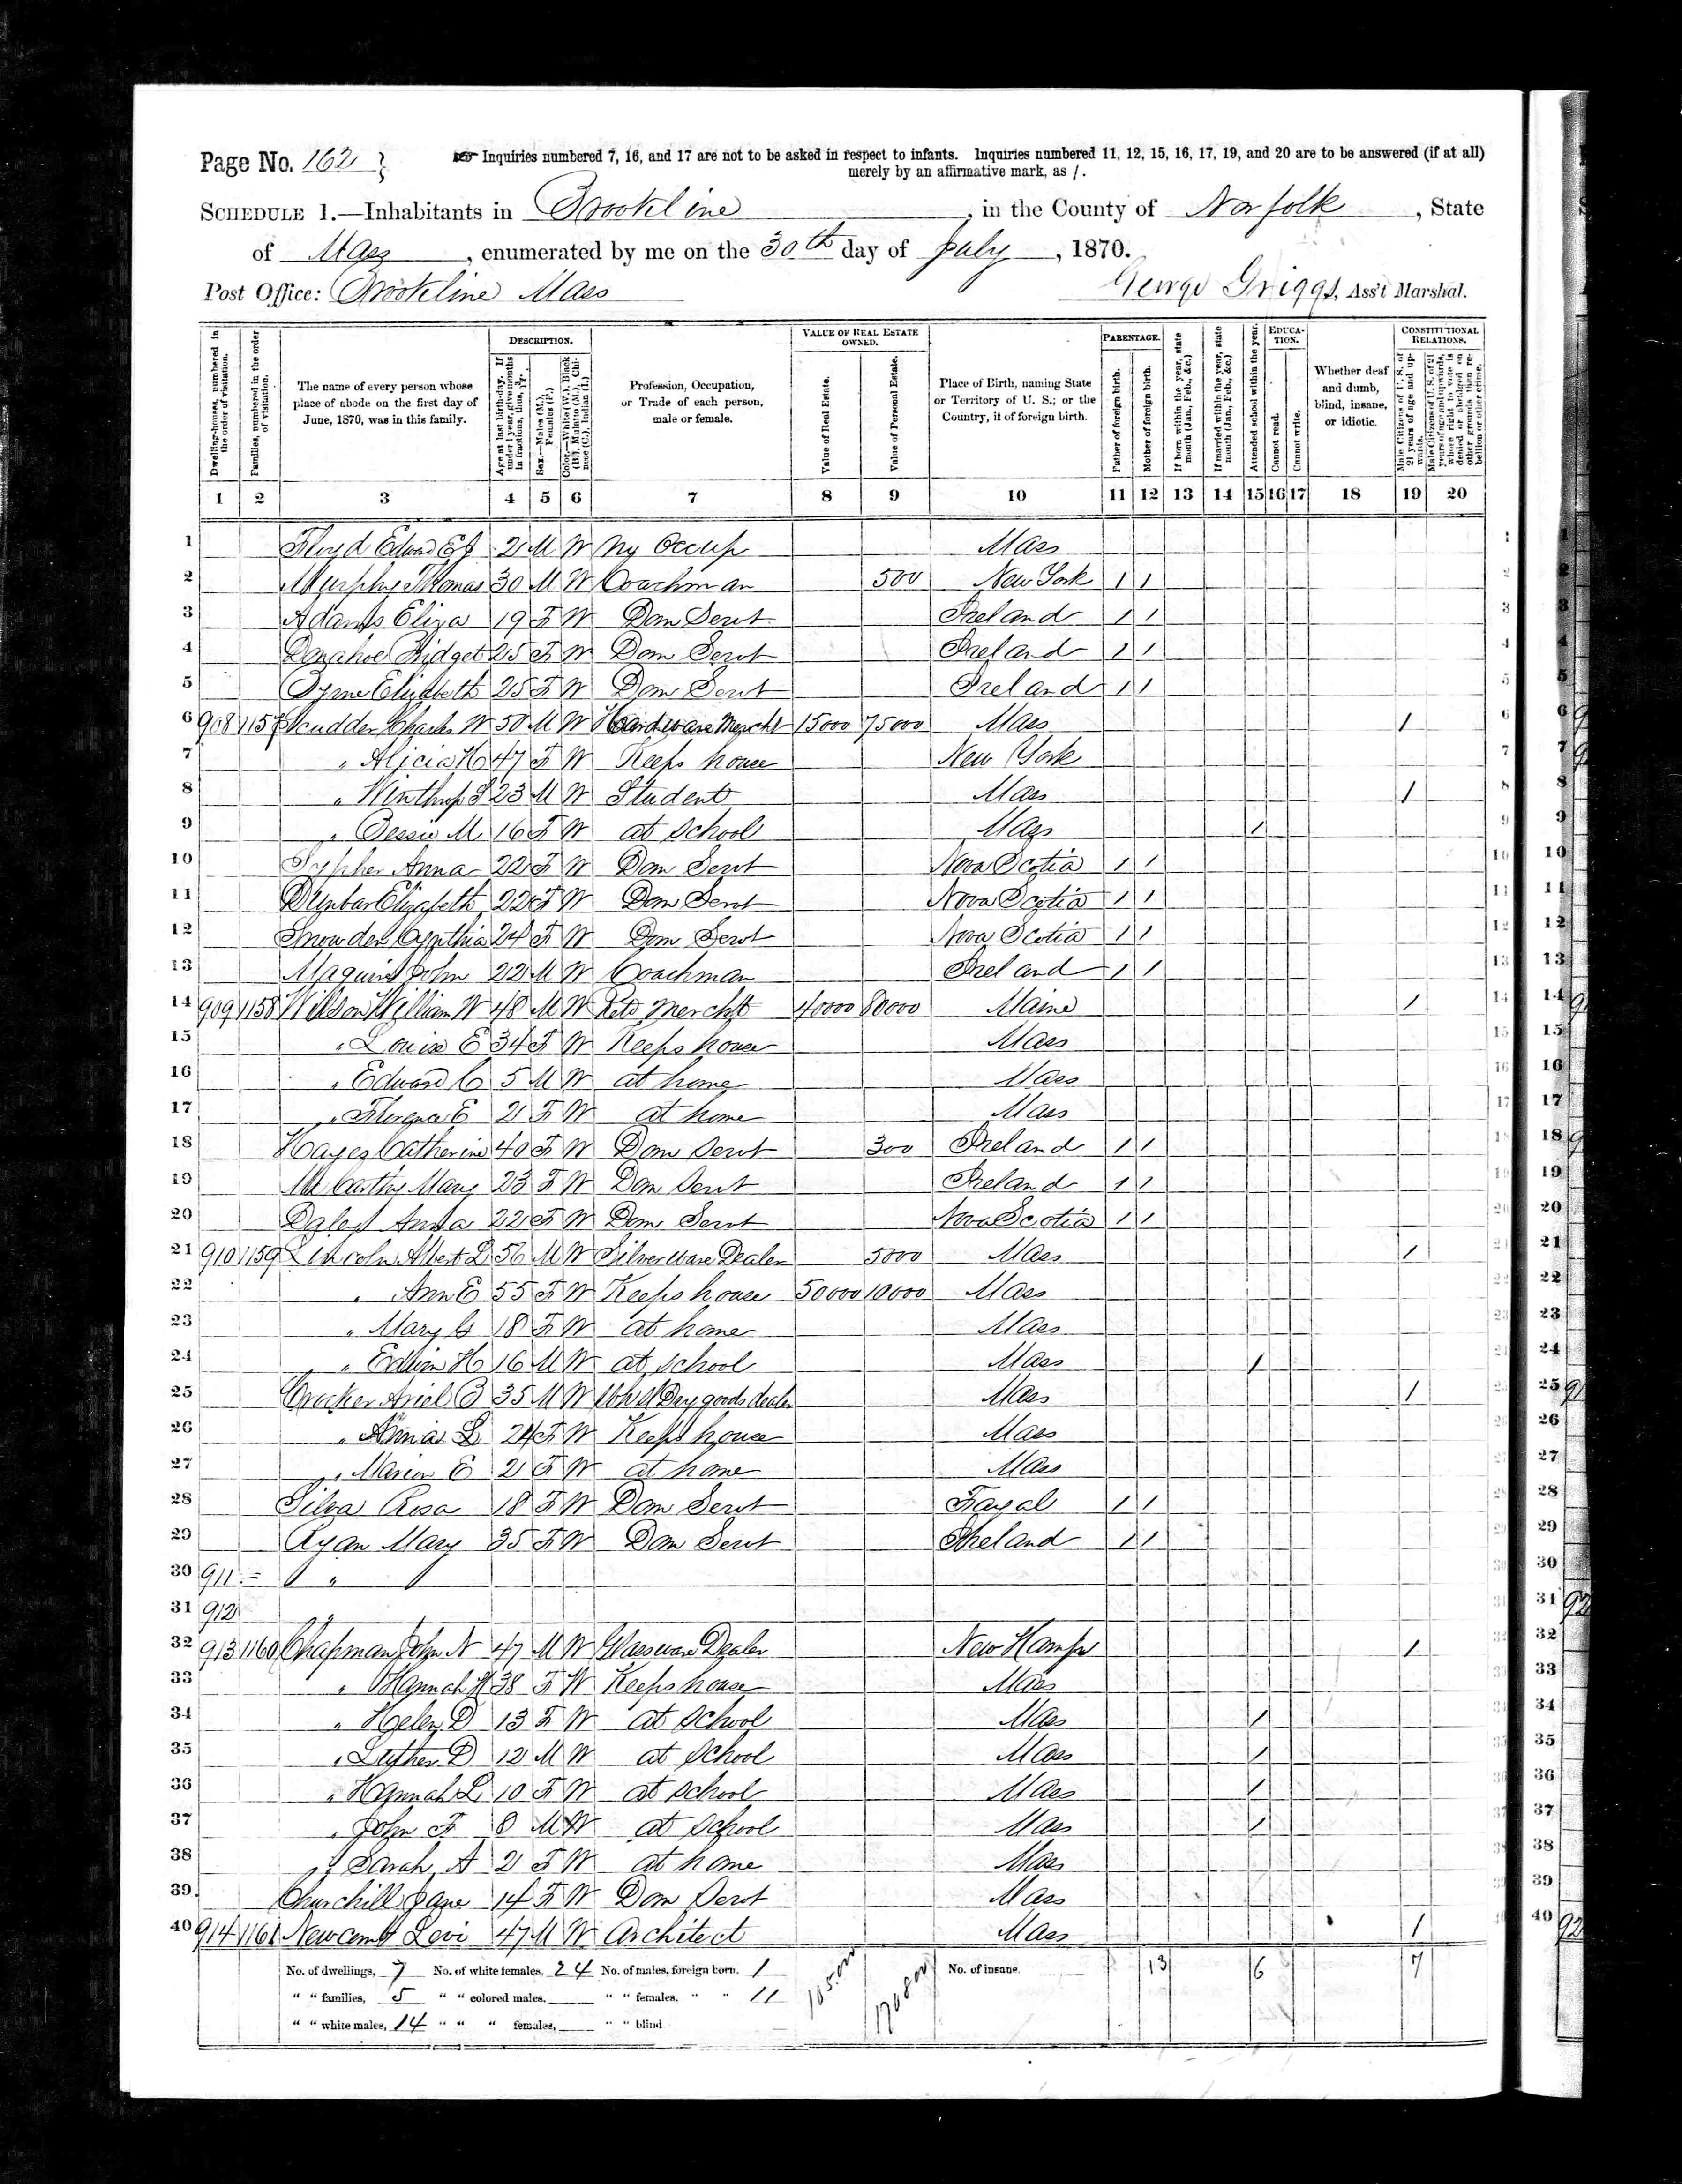 Page No. 162
Inquiries numbered 7, 16, and 17 are not to be asked in respect to infants. Inquiries numbered 11, 12, 15, 16, 17, 19, and 20 are to be answered (if at all)
merely by an affirmative mark, as /.
SCHEDULE 1.—Inhabitants in Brookline, in the County of Norfolk, State
of Mass, enumerated by me on the 30th day of July, 1870.
Post Office: Brookline Mass
George Griggs, Ass't Marshal.
Dwelling-houses, numbered in the order of visitation.
Families, numbered in the order of visitation.
The name of every person whose place of abode on the first day of June, 1870, was in this family.
DESCRIPTION.
Age at last birth-day. If under 1 year, give months in fractions, thus,
Sex.—Males (M.), Females (F.)
Color.—White (W.), Black (B.), Mulatto (M.), Chinese (C.), Indian (I.)
Profession, Occupation, or Trade of each person, male or female.
VALUE OF REAL ESTATE OWNED.
Value of Real Estate.
Value of Personal Estate.
Place of Birth, naming State or Territory of U. S.; or the Country, if of foreign birth.
PARENTAGE.
Father of foreign birth.
Mother of foreign birth.
If born within the year, state month (Jan., Feb., &c.)
If married within the year, state month (Jan., Feb., &c.)
Attended school within the year.
EDUCATION.
Cannot read.
Cannot write.
Whether deaf and dumb, blind, insane, or idiotic.
CONSTITUTIONAL RELATIONS.
Male Citizens of U. S. of 21 years of age and upwards.
Male Citizens of U. S. of 21 years of age and upwards, whose right to vote is denied or abridged on other grounds than rebellion or other crime.
1 2 3 4 5 6 7 8 9 10 11 12 13 14 15 16 17 18 19 20
1 Floyd 2 M W No Occup Mass
2 Murphy Thomas 30 M W Coachman 500 New York 1 1
3 Adams Eliza 19 F W Dom Servt Ireland 1 1
4 Donahoe Bridget 25 F W Dom Servt Ireland 1 1
5 Byrne Elizabeth 25 F W Dom Servt Ireland 1 1
6 908 1157 Scudder Charles W 50 M W Hardware Mercht 15000 75000 Mass 1
7 " Alicia H 47 F W Keeps house New York
8 " Winthrop S 23 M W Student Mass 1
9 " Bessie M 16 F W at School Mass 1
10 Sypher Anna 22 F W Dom Servt Nova Scotia 1 1
11 Dunbar Elizabeth 22 F W Dom Servt Nova Scotia 1 1
12 Snowden Cynthia 24 F W Dom Servt Nova Scotia 1 1
13 Maguire John 22 M W Coachman Ireland 1 1
14 909 1158 Wilson William W 48 M W Retd Mercht 40000 80000 Maine 1
15 " Louisa E 34 F W Keeps house Mass
16 " Edward C 5 M W at home Mass
17 " Florence E 2 F W at home Mass
18 Hayes Catherine 40 F W Dom Servt 300 Ireland 1 1
19 McCarthy Mary 23 F W Dom Servt Ireland 1 1
20 Anna 22 F W Dom Servt Nova Scotia 1 1
21 910 1159 Lincoln Albert L 56 M W Silver ware Dealer 5000 Mass 1
22 " Ann E 55 F W Keeps house 50000 10000 Mass
23 " Mary G 18 F W at home Mass
24 " Edwin H 16 M W at School Mass 1
25 Crocker Ariel B 35 M W Whsl Dry goods dealer Mass 1
26 " Annie L 24 F W Keeps house Mass
27 " Marion E 2 F W at home Mass
28 Silva Rosa 18 F W Dom Servt Fayal 1 1
29 Ryan Mary 35 F W Dom Servt Ireland 1 1
30 911 = "
31 912 "
32 913 1160 Chapman John N 47 M W Glassware Dealer New Hamps 1
33 " Hannah H 38 F W Keeps house Mass
34 " Helen D 13 F W at School Mass 1
35 " Luther D 12 M W at School Mass 1
36 " Hannah L 10 F W at school Mass 1
37 " John F 8 M W at School Mass 1
38 " Sarah A 2 F W at home Mass
39 Churchill Jane 14 F W Dom Servt Mass
40 914 1161 Newcomb Levi 47 M W Architect Mass 1
No. of dwellings, 7 No. of white females, 24 No. of males, foreign born. 1 105.000 170800 No. of insane. 13 6 7
" " families, 5 " " colored males, " " females, " " 11
" " white males, 14 " " " females, " " blind.